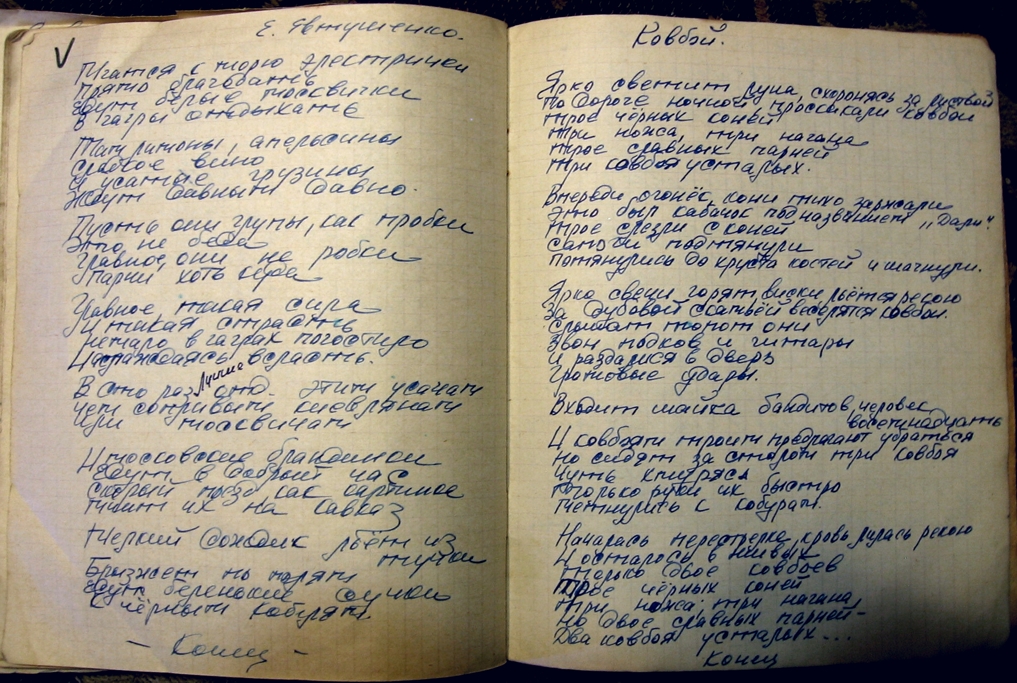 Е. Евтушенко.
V
Мчатся к морю электрички
прямо благодать
Едут белые москвички
В Гагры отдыхать
Там лимоны, апельсины
Сладкое вино
И усатые грузины
Ждут давным давно.
Пусть они глупы, как пробки
Это не беда
Главное, они не робки
Парни хоть куда
Главное такая сила
И такая страсть
Немало в Гаграх погостило
Наслаждаясь всласть.
В сто раз лучше отд. этим усачам
чем сопливым киевлянам
или москвичам
И московские блондинки
Едут в добрый час
Скорый поезд как картинки
Мчит их на Кавказ
Мелкий дождик льёт из тучки
Брызжет по полям
Едут беленькие сучки
К чёрным кобелям.
- Конец -
Ковбой.
Ярко светит луна, схоронясь за листвой
По дороге ночной проскакали ковбои
трое чёрных коней
три ножа, три нагана
трое славных парней
три ковбоя усталых.
Впереди огонёк, кони тихо заржали
Это был кабачок под названием "Дали".
трое слезли с коней
сапоги подтянули
потянулись до хруста костей и шагнули.
Ярко свечи горят, виски льётся рекою
За дубовой скамьёй веселятся ковбои.
Слышат топот они
Звон подков и гитары
И раздался в дверь
Громовые удары.
Входит шайка бандитов, человек
восемнадцать
И ковбоям троим предлагают убраться
Но сидят за столом три ковбоя
чуть хмурясь
только руки их быстро
метнулись к кобурам.
Началась перестрелка, кровь лилась рекою
И осталось в живых
только двое ковбоев
трое чёрных коней
три ножа, три нагана
Но двое славных парней -
Два ковбоя усталых...
Конец